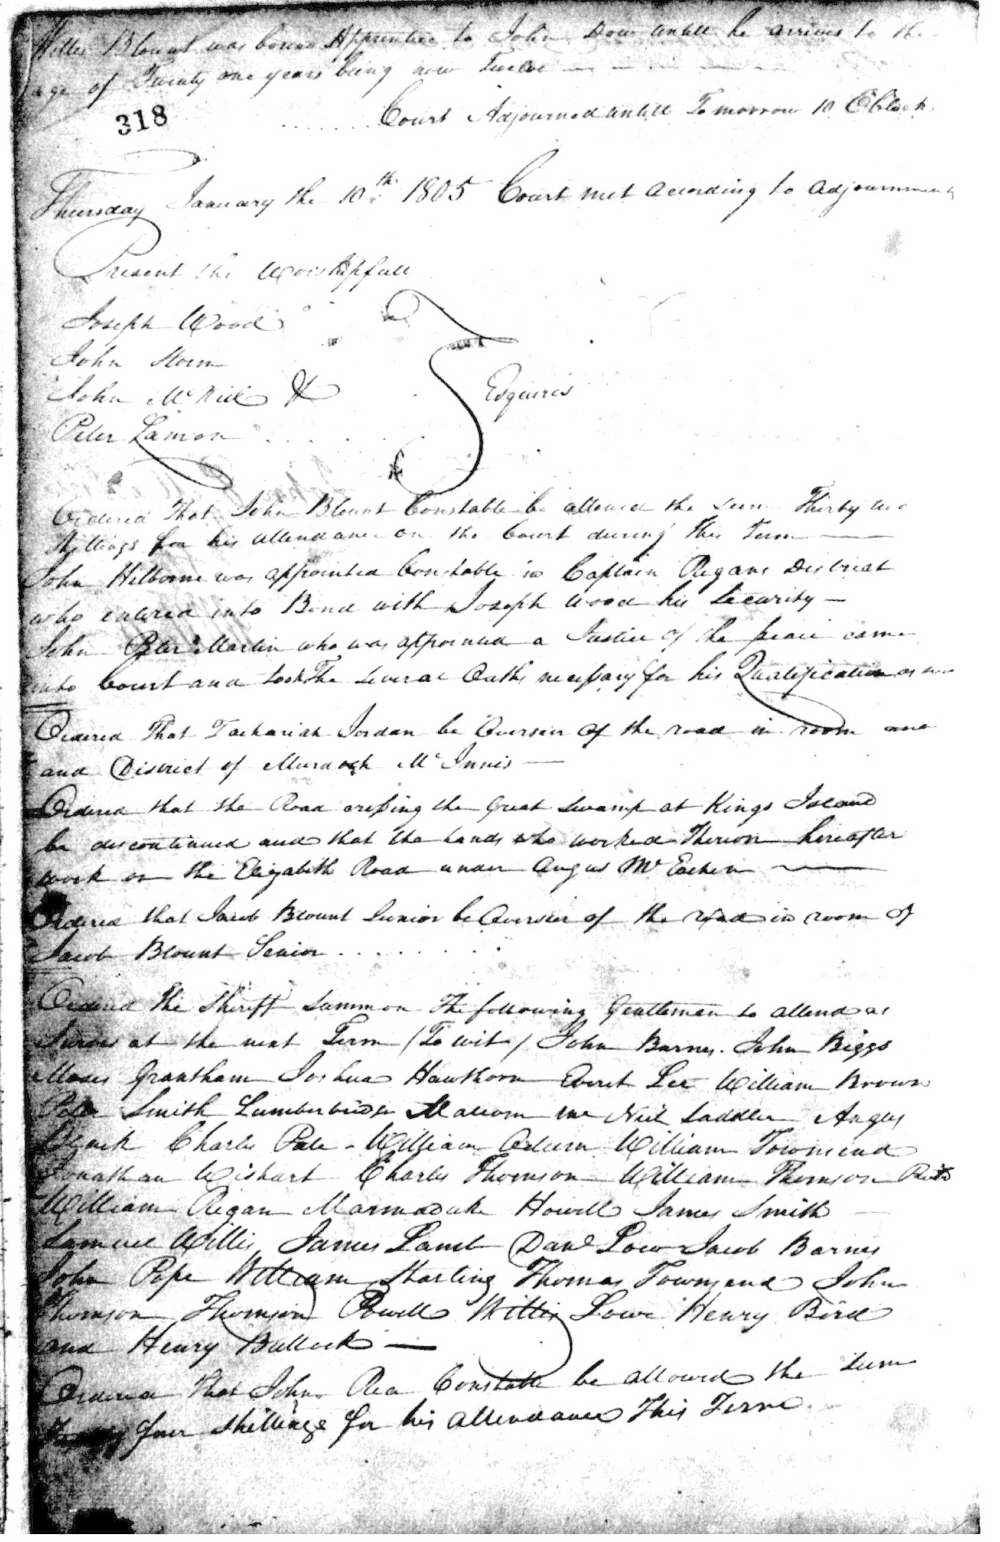 Willis Blount was bound Apprentice to John Dow untill he arrives to the
age of Twenty one years being now Twelve
318
Court Adjourned untill Tomorrow 10 OClock
Thursday January the 10th 1805 Court met acording to adjournment
Present the Worshipfull
Joseph Wood
John
John McNeil &
Peter Lamon
Esquires
Ordered That John Blount Constable be allowed the sum Thirty two
Shillings for his attendance on the Court during this Term
John Hilborne was appointed Constable in Captain Regans District
who entered into Bond with Joseph Wood his Security
John Peter Martin who was appointed a Justice of the peace came
into Court and took The several Oaths necessary for his Qualification as
Ordered That Zachariah Jordan be Overseer of the road in room and
and District of Murdoch McInnis
Ordered that the Road crossing the Great Swamp at Kings Island
be discontinued and that the hands who worked Thereon hereafter
work on the Elizabeth Road under Angus McEachen
Ordered that Jacob Blount Junior be Overseer of the road in room of
Jacob Blount Senior
Ordered the Sheriff Summon The following Gentlemen to attend as
Jurors at the next Term (To wit) John Barnes John Biggs
Moses Grantham Joshua Hawthorn Everet Lee William Brown
Peter Smith Lumberbridge Malcom Mc Neil Saddler Angus
Charles Pate William Odum William Townsend
Jonathan Wishart Charles Thomson William Thomson
William Regan Marmaduke Howell James Smith
Samuel Willis James Lamb Danl Low Jacob Barnes
John Pope William Starling Thomas Townsend John
Thomson Thomson Powell Willis Lowe Henry Bird
and Henry Bullock
Ordered That John Rea Constable be allowed the Sum
four Shillings for his attendance This Term